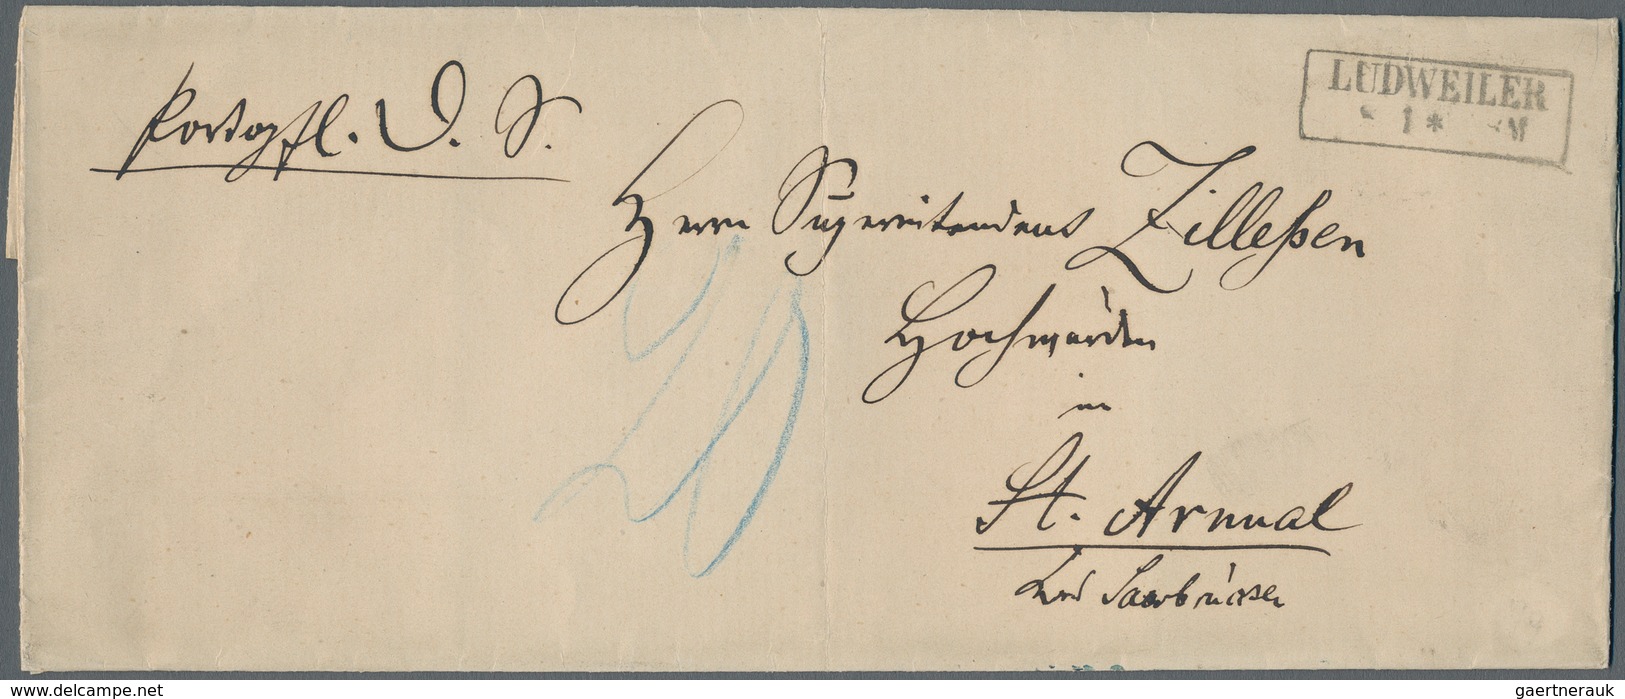 Portopfl. D. S.
LUDWEILER
1 * M
Herrn Superintendent Zilleßen
Hochwürden
in
St. Arnual
Saarbrücken
20
www.delcampe.net
gaertnerauk